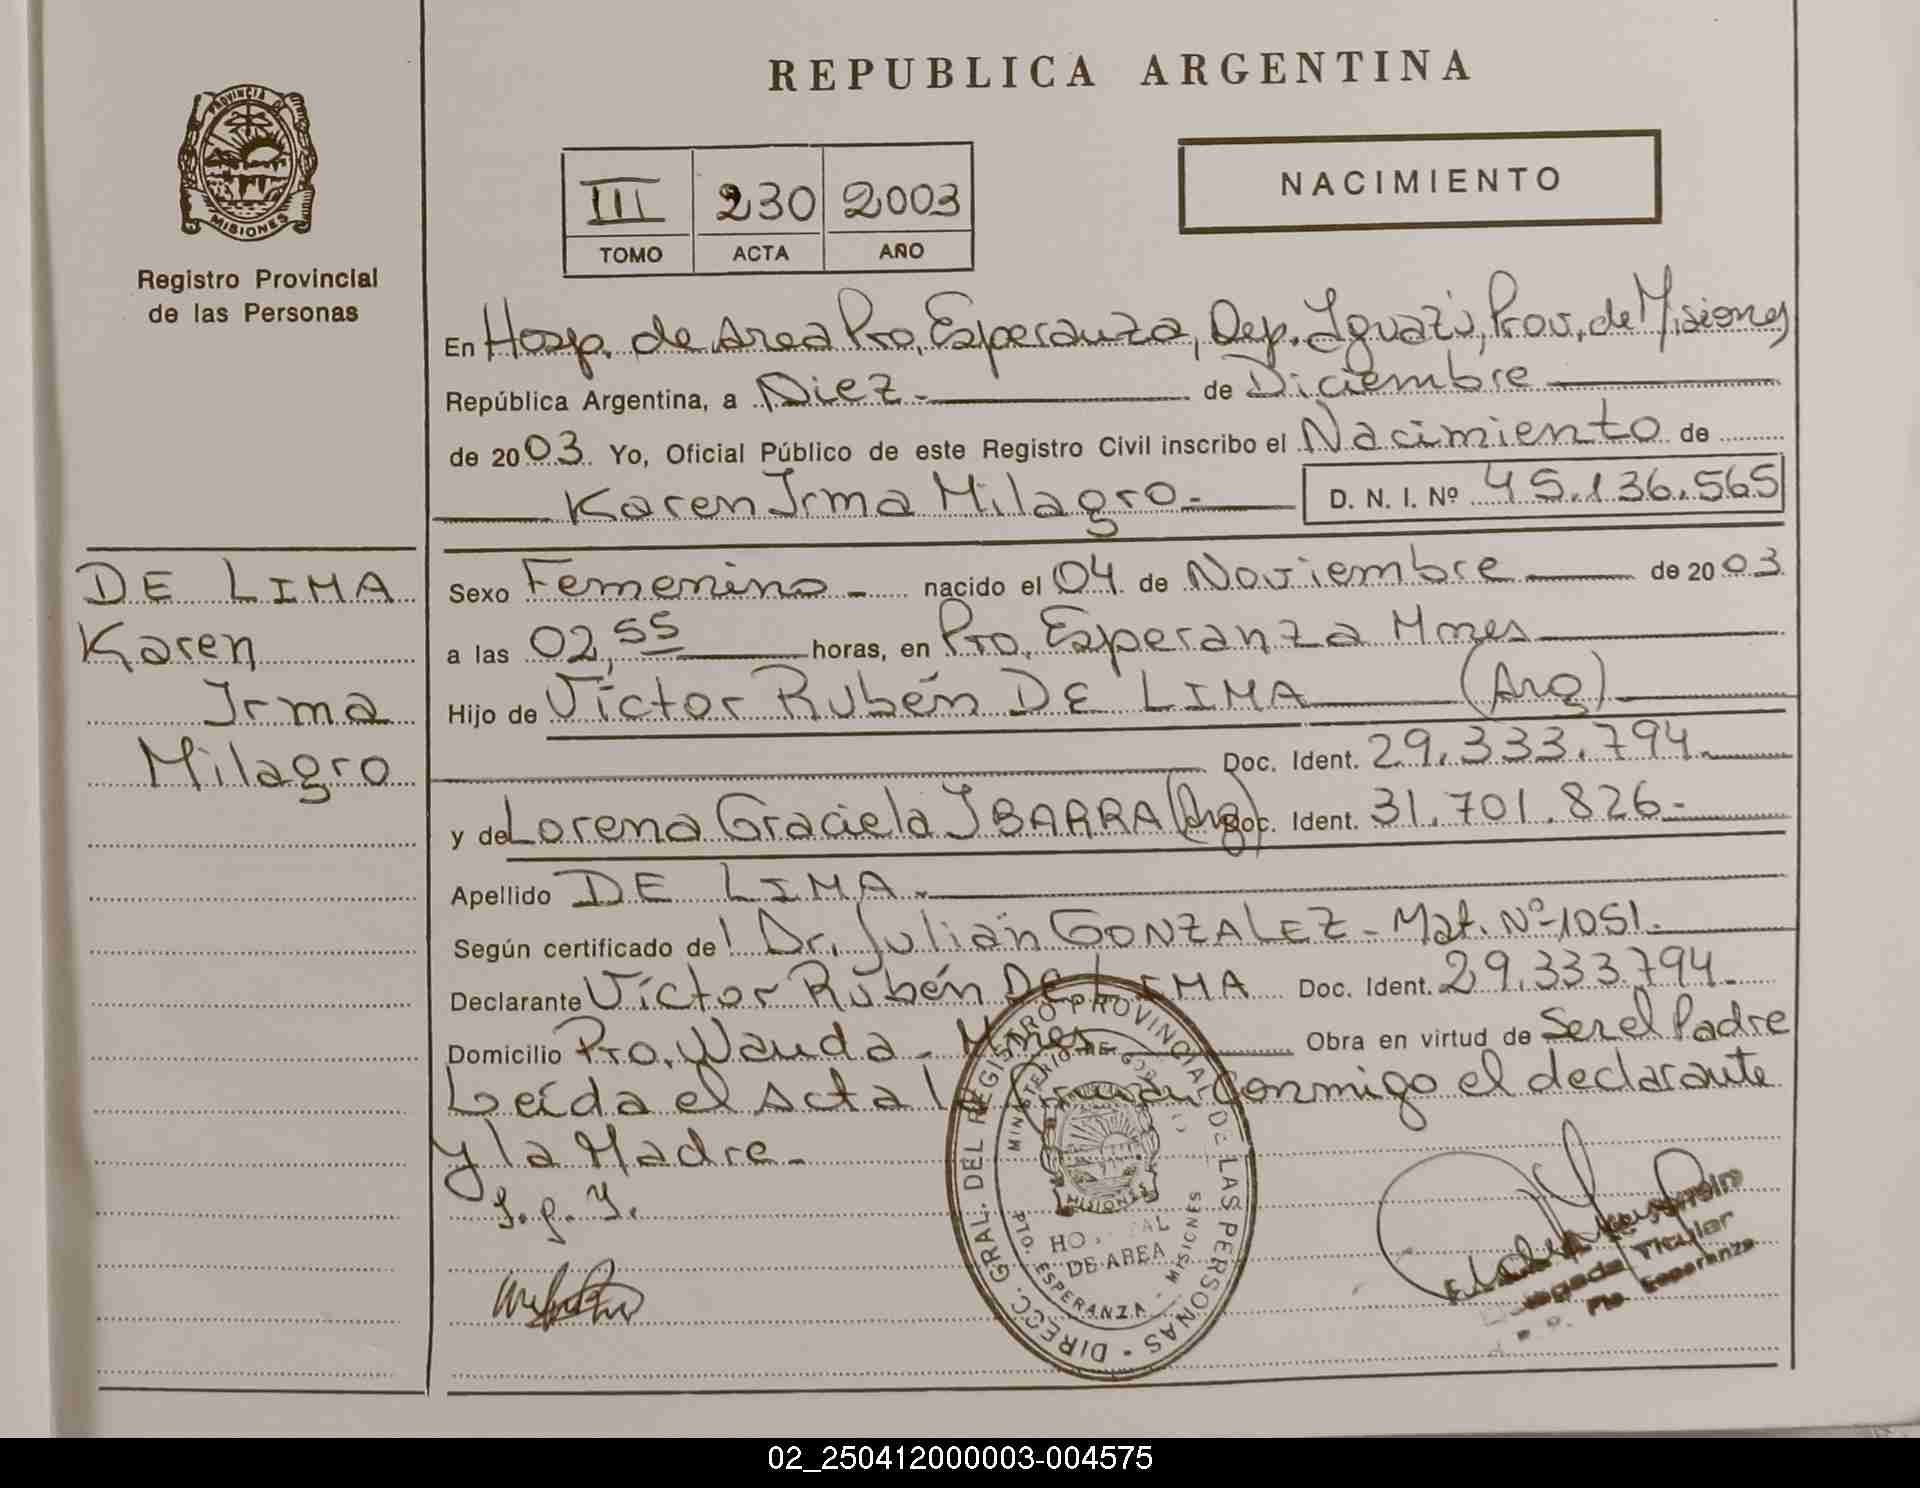 REPUBLICA ARGENTINA
PROVINCIA DE
MISIONES
Registro Provincial
de las Personas
III 230 2003
TOMO ACTA AÑO
NACIMIENTO
En Hosp. de Area Pto. Esperanza, Dep. Iguazú, Prov. de Misiones
República Argentina, a Diez.- de Diciembre
de 2003 Yo, Oficial Público de este Registro Civil inscribo el Nacimiento de
Karen Irma Milagro.- D. N. I. Nº 45.136.565
DE LIMA
Karen
Irma
Milagro
Sexo Femenino - nacido el 04 de Noviembre de 2003
a las 02,55 horas, en Pto. Esperanza Mnes
Hijo de Víctor Rubén DE LIMA (Arg)
Doc. Ident. 29.333.794.
y de Lorena Graciela IBARRA (Arg) Doc. Ident. 31.701.826.-
Apellido DE LIMA.-
Según certificado de Dr. Julián GONZALEZ - Mat. Nº 1051.
Declarante Víctor Rubén DE LIMA Doc. Ident. 29.333.794.
Domicilio Pto. Wanda - Mnes Obra en virtud de Ser el Padre
Leída el Acta la firman conmigo el declarante
y la Madre.-
DIRECC. GRAL. DEL REGISTRO PROVINCIAL DE LAS PERSONAS
MINISTERIO DE
MISIONES
DE AREA
PTO. ESPERANZA - MISIONES
Titular
Pto Esperanza
02_250412000003-004575